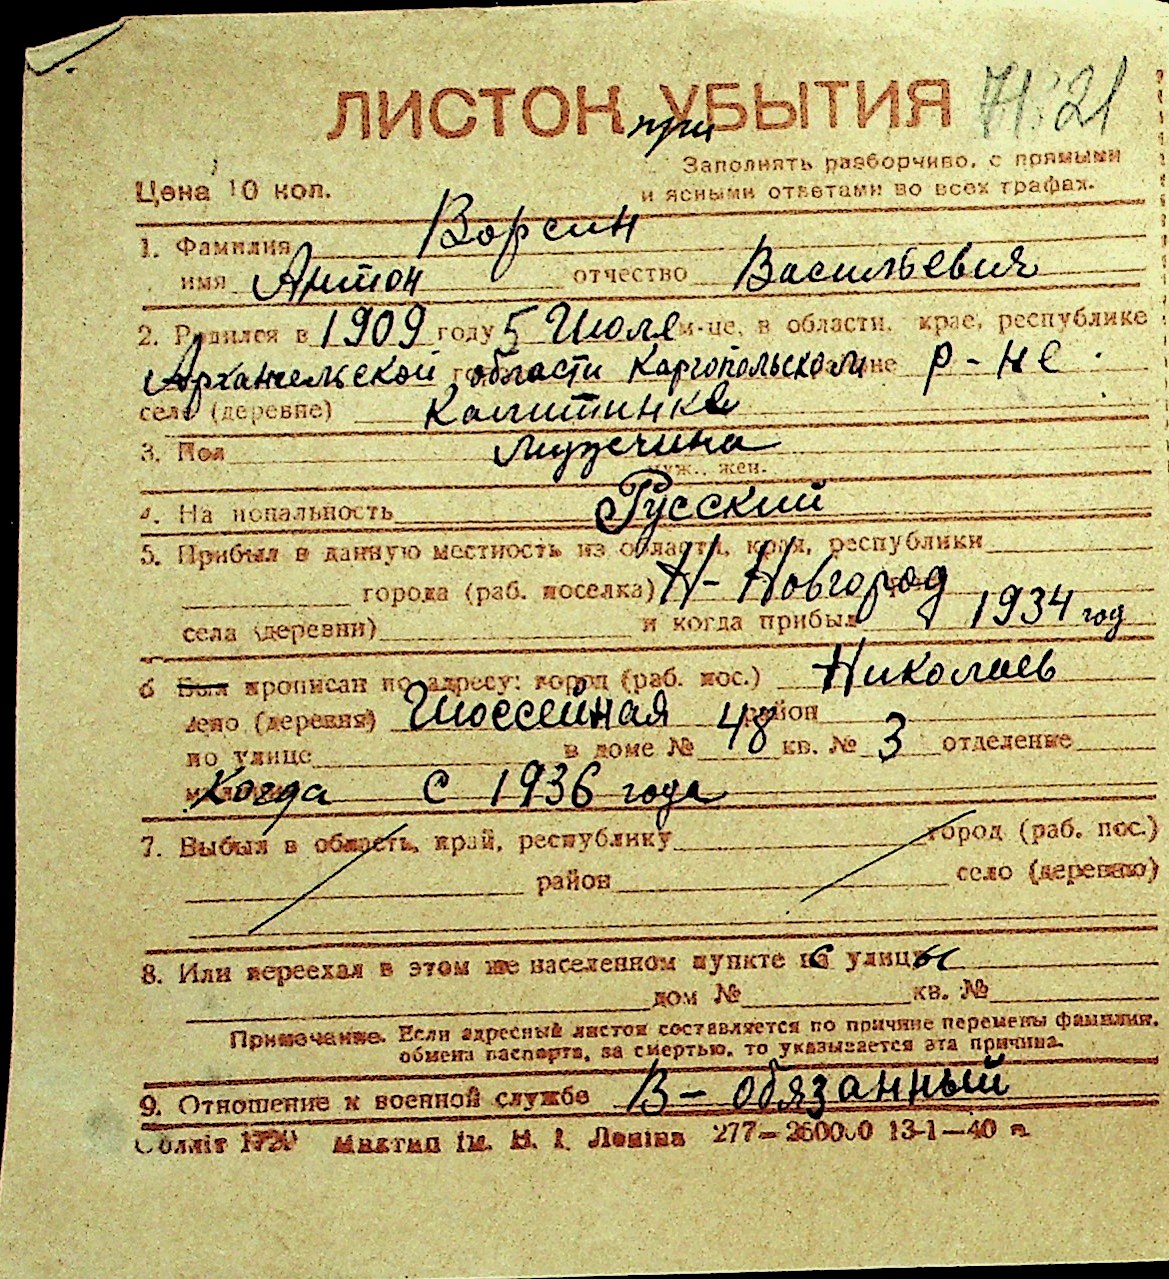 ЛИСТОК УБЫТИЯ
при
Заполнять разборчиво, с прямыми
Цена 10 коп.
и ясными ответами во всех графах.
1. Фамилия Ворсин
имя Антон отчество Васильевич
2. Родился в 1909 году 5 Июля м-це, в области, крае, республике
Архангельской области Каргопольском районе р-не
село (деревне) Калитинке
3. Пол мужчина
муж., жен.
4. Национальность Русский
5. Прибыл в данную местность из области, края, республики
города (раб. поселка) Н-Новгород
села (деревни) и когда прибыл 1934 год
6 Был прописан по адресу: город (раб. пос.) Николаев
село (деревня) Шоссейная 48 район
по улице в доме № кв. № 3 отделение
Когда с 1936 года
7. Выбыл в область, край, республику город (раб. пос.)
район село (деревню)
8. Или переехал в этом же населенном пункте с улицы
дом № кв. №
Примечание. Если адресный листок составляется по причине перемены фамилии,
обмена паспорта, за смертью, то указывается эта причина.
9. Отношение к военной службе В-обязанный
Обллiт Миктип iм. В. I. Ленiна 277-260000 13-1-40 п.